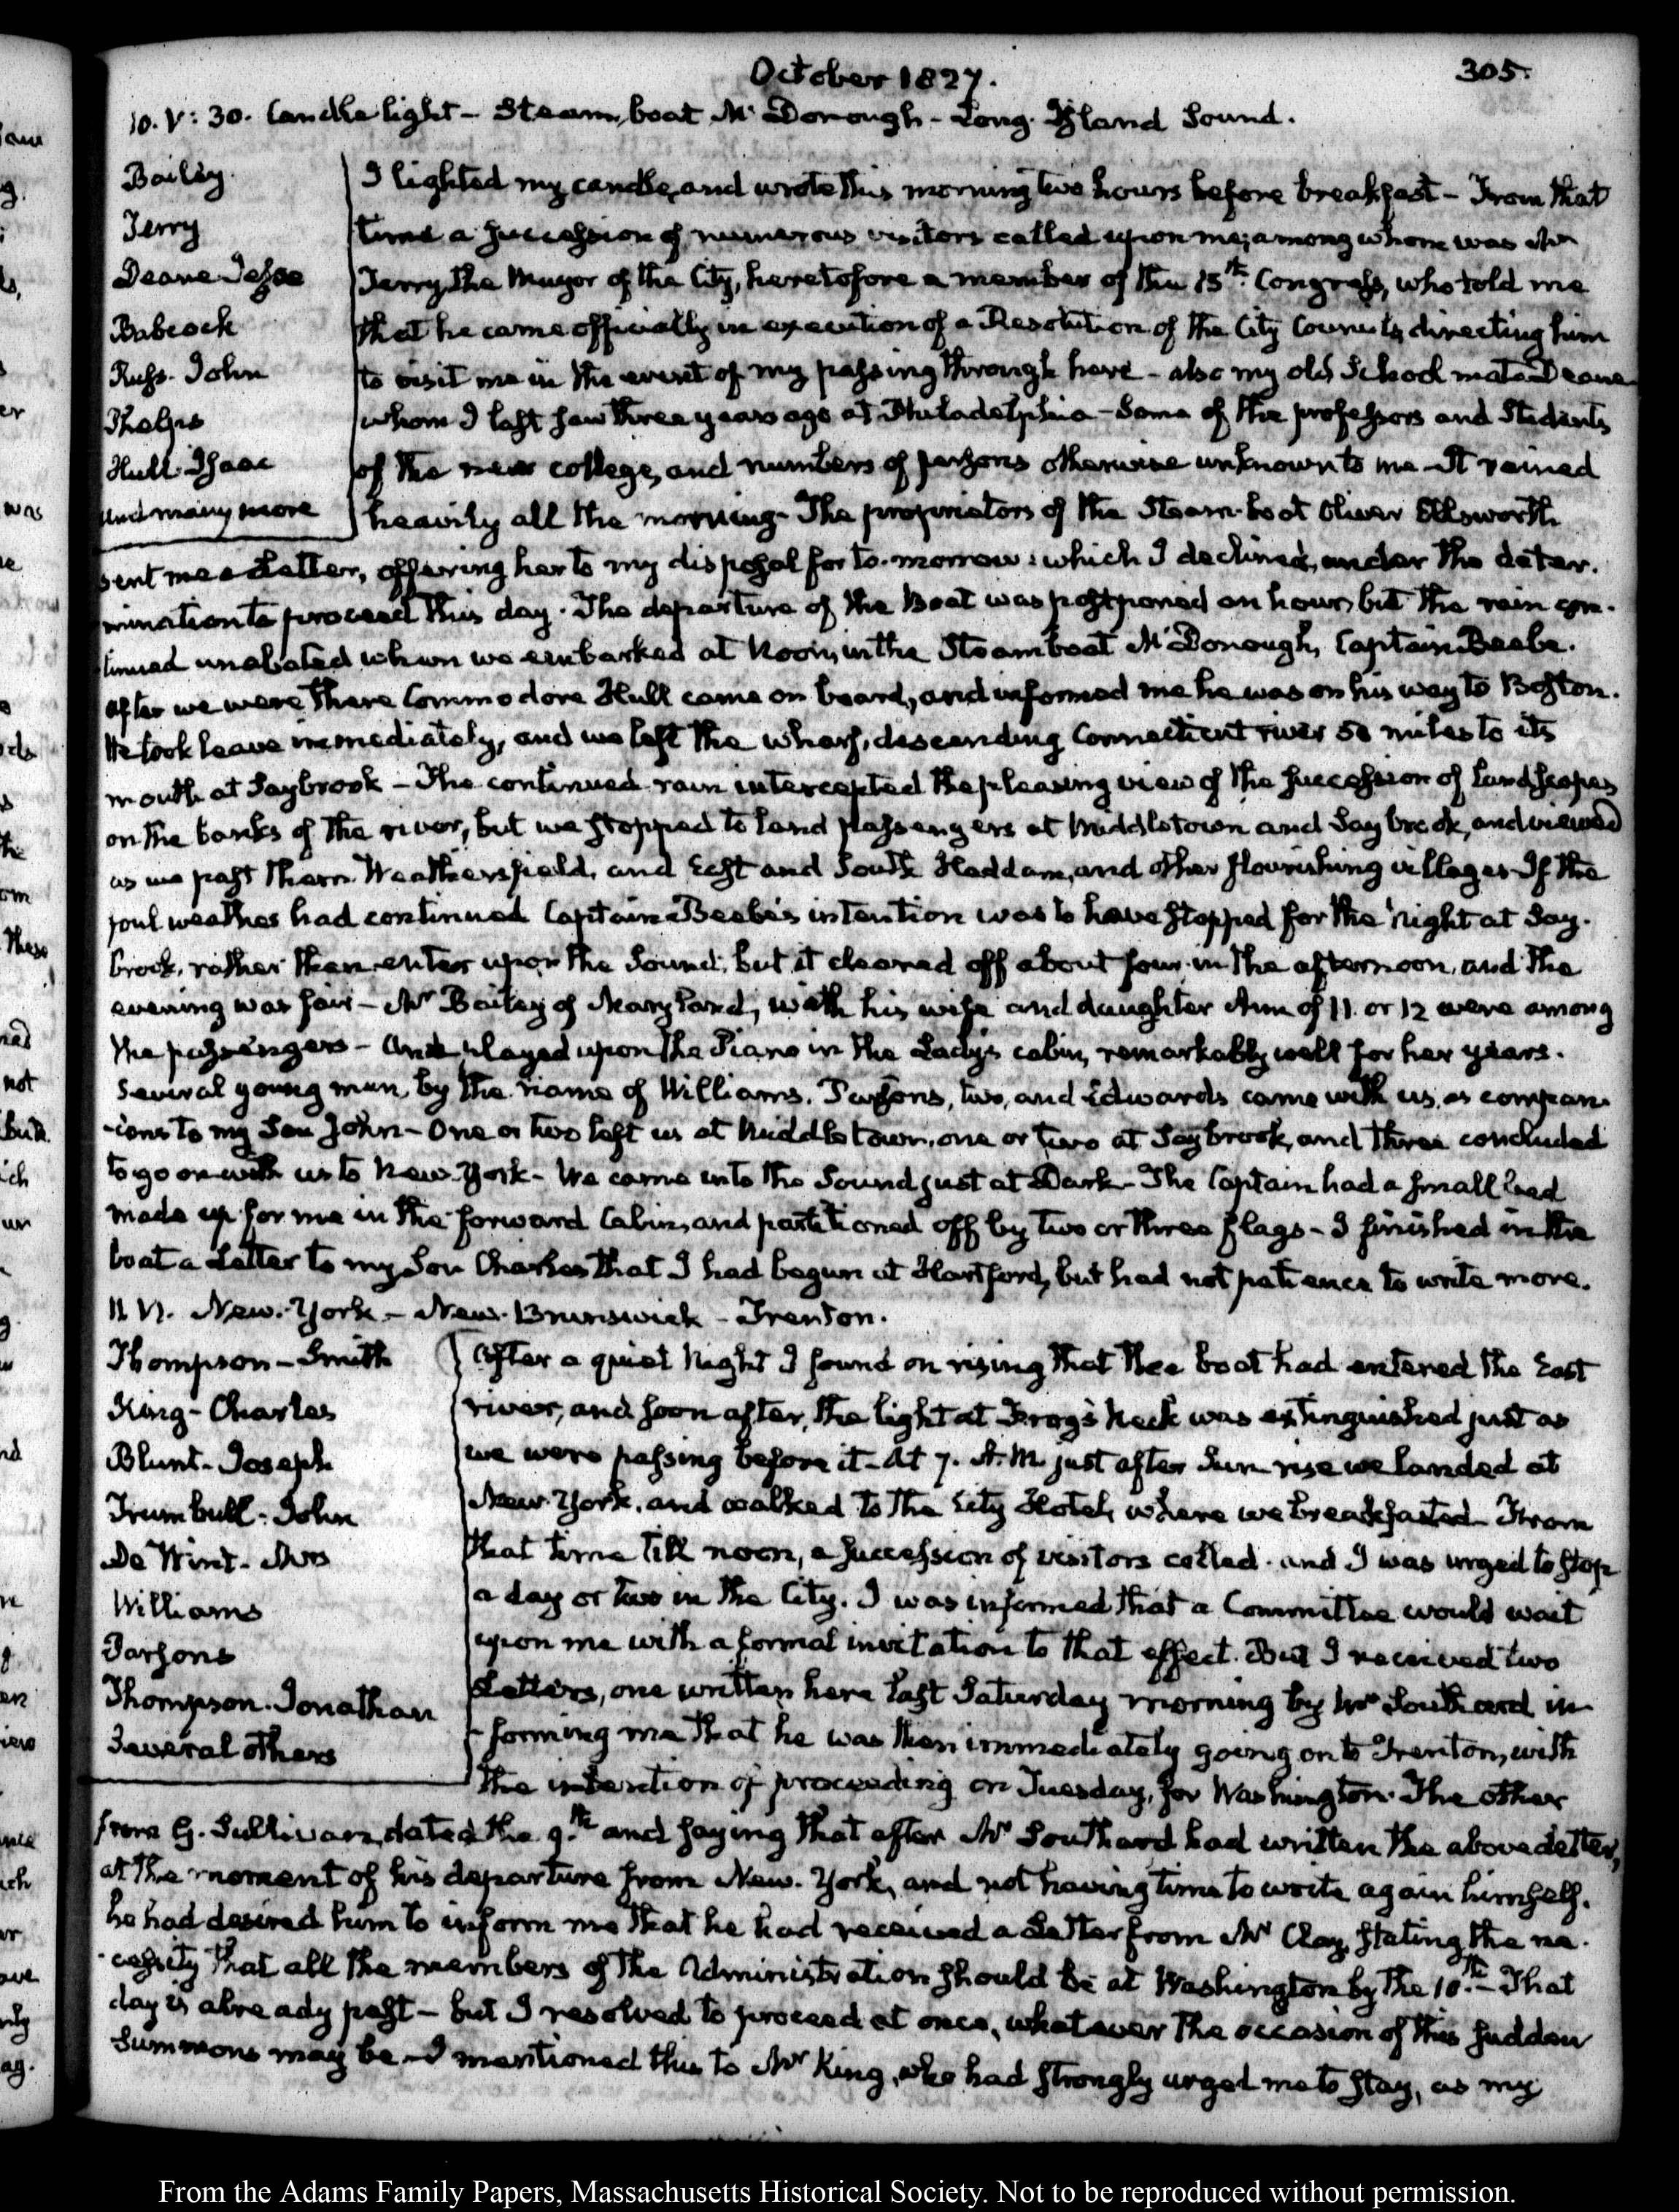 October 1827.
305.
10. V: 30. Candle light – Steam boat Mc Donough – Long Island Sound.
Bailey.
Terry
Deane Jesse
Babcock
Russ. John
Phelps
Hull. Isaac
and many more
I lighted my candle, and wrote this morning two hours before breakfast – From that
time a succession of numerous visitors called upon me; among whom was Mr
Terry the Mayor of the City, heretofore a member of the 15th. Congress, who told me
that he came officially in execution of a Resolution of the City Councils, directing him
to visit me in the event of my passing through here – also my old School mate Deane
whom I last saw three years ago at Philadelphia – Some of the professors and Students
of the new college, and numbers of persons otherwise unknown to me – It rained
heavily all the morning – The proprietors of the Steam-boat Oliver Ellsworth
sent me a Letter, offering her to my disposal for to-morrow: which I declined, under the deter-
mination to proceed this day. The departure of the Boat was postponed an hour, but the rain con-
tinued unabated when we embarked at Noon, in the Steamboat McDonough, Captain Beebe.
After we were there Commodore Hull came on board, and informed me he was on his way to Boston.
He took leave immediately, and we left the wharf, descending Connecticut river 50 miles to its
mouth at Saybrook – The continued rain intercepted the pleasing view of the succession of landscapes
on the banks of the river, but we stopped to land passengers at Middletown and Saybrook, and viewed
as we past them Weathersfield, and East and South Haddam, and other flourishing villages – If the
foul weather had continued Captain Beebe's intention was to have stopped for the night at Say-
brook, rather than enter upon the Sound; but it cleared off about four in the afternoon, and the
evening was fair – Mr Bailey of Maryland, with his wife and daughter Ann of 11. or 12 were among
the passengers – Ann played upon the Piano in the Lady's cabin, remarkably well for her years.
Several young men, by the name of Williams, Parsons, two, and Edwards came with us, as compan-
-ions to my Son John – One or two left us at Middletown, one or two at Saybrook, and three concluded
to go on with us to New-York – We came into the Sound just at Dark – The Captain had a small bed
made up for me in the forward Cabin, and partitioned off by two or three flags – I finished in the
boat a Letter to my Son Charles that I had begun at Hartford, but had not patience to write more.
11 VI. New-York – New-Brunswick – Trenton.
Thompson – Smith
King – Charles
Blunt – Joseph
Trumbull – John
De Wint – Mrs
Williams
Parsons
Thompson. Jonathan
Several others
After a quiet Night I found on rising that the boat had entered the East
river, and soon after, the light at Frog's Neck was extinguished just as
we were passing before it – At 7. A.M. just after Sun rise we landed at
New York, and walked to the City Hotel, where we breakfasted – From
that time till noon, a succession of visitors called – and I was urged to stop
a day or two in the City. I was informed that a Committee would wait
upon me with a formal invitation to that effect. But I received two
Letters, one written here last Saturday morning by Mr Southard in-
-forming me that he was then immediately going on to Trenton, with
the intention of proceeding on Tuesday, for Washington. The other
from G. Sullivan, dated the 9.th and saying that after Mr Southard had written the above Letter,
at the moment of his departure from New-York, and not having time to write again himself,
he had desired him to inform me that he had received a Letter from Mr Clay, stating the ne-
-cessity that all the members of the Administration should be at Washington by the 10.th – That
day is already past – but I resolved to proceed at once, whatever the occasion of this sudden
Summons may be – I mentioned this to Mr King, who had strongly urged me to stay, as my
From the Adams Family Papers, Massachusetts Historical Society. Not to be reproduced without permission.